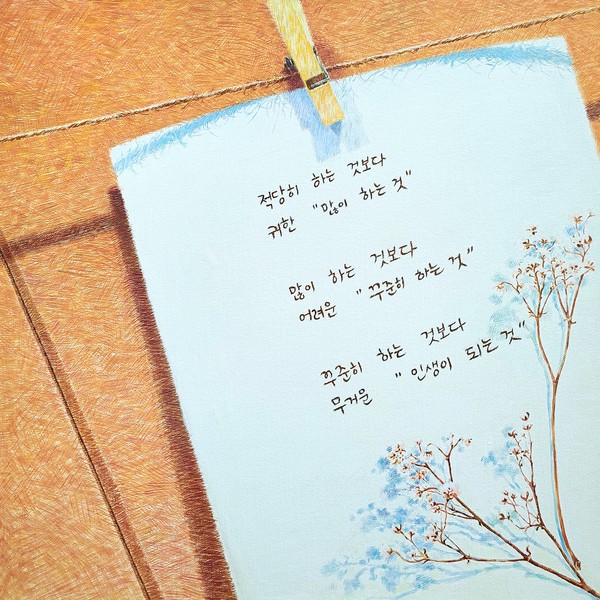 적당히 하는 것보다
귀한 "많이 하는 것"
많이 하는 것보다
어려운 "꾸준히 하는 것"
꾸준히 하는 것보다
무거운 "인생이 되는 것"